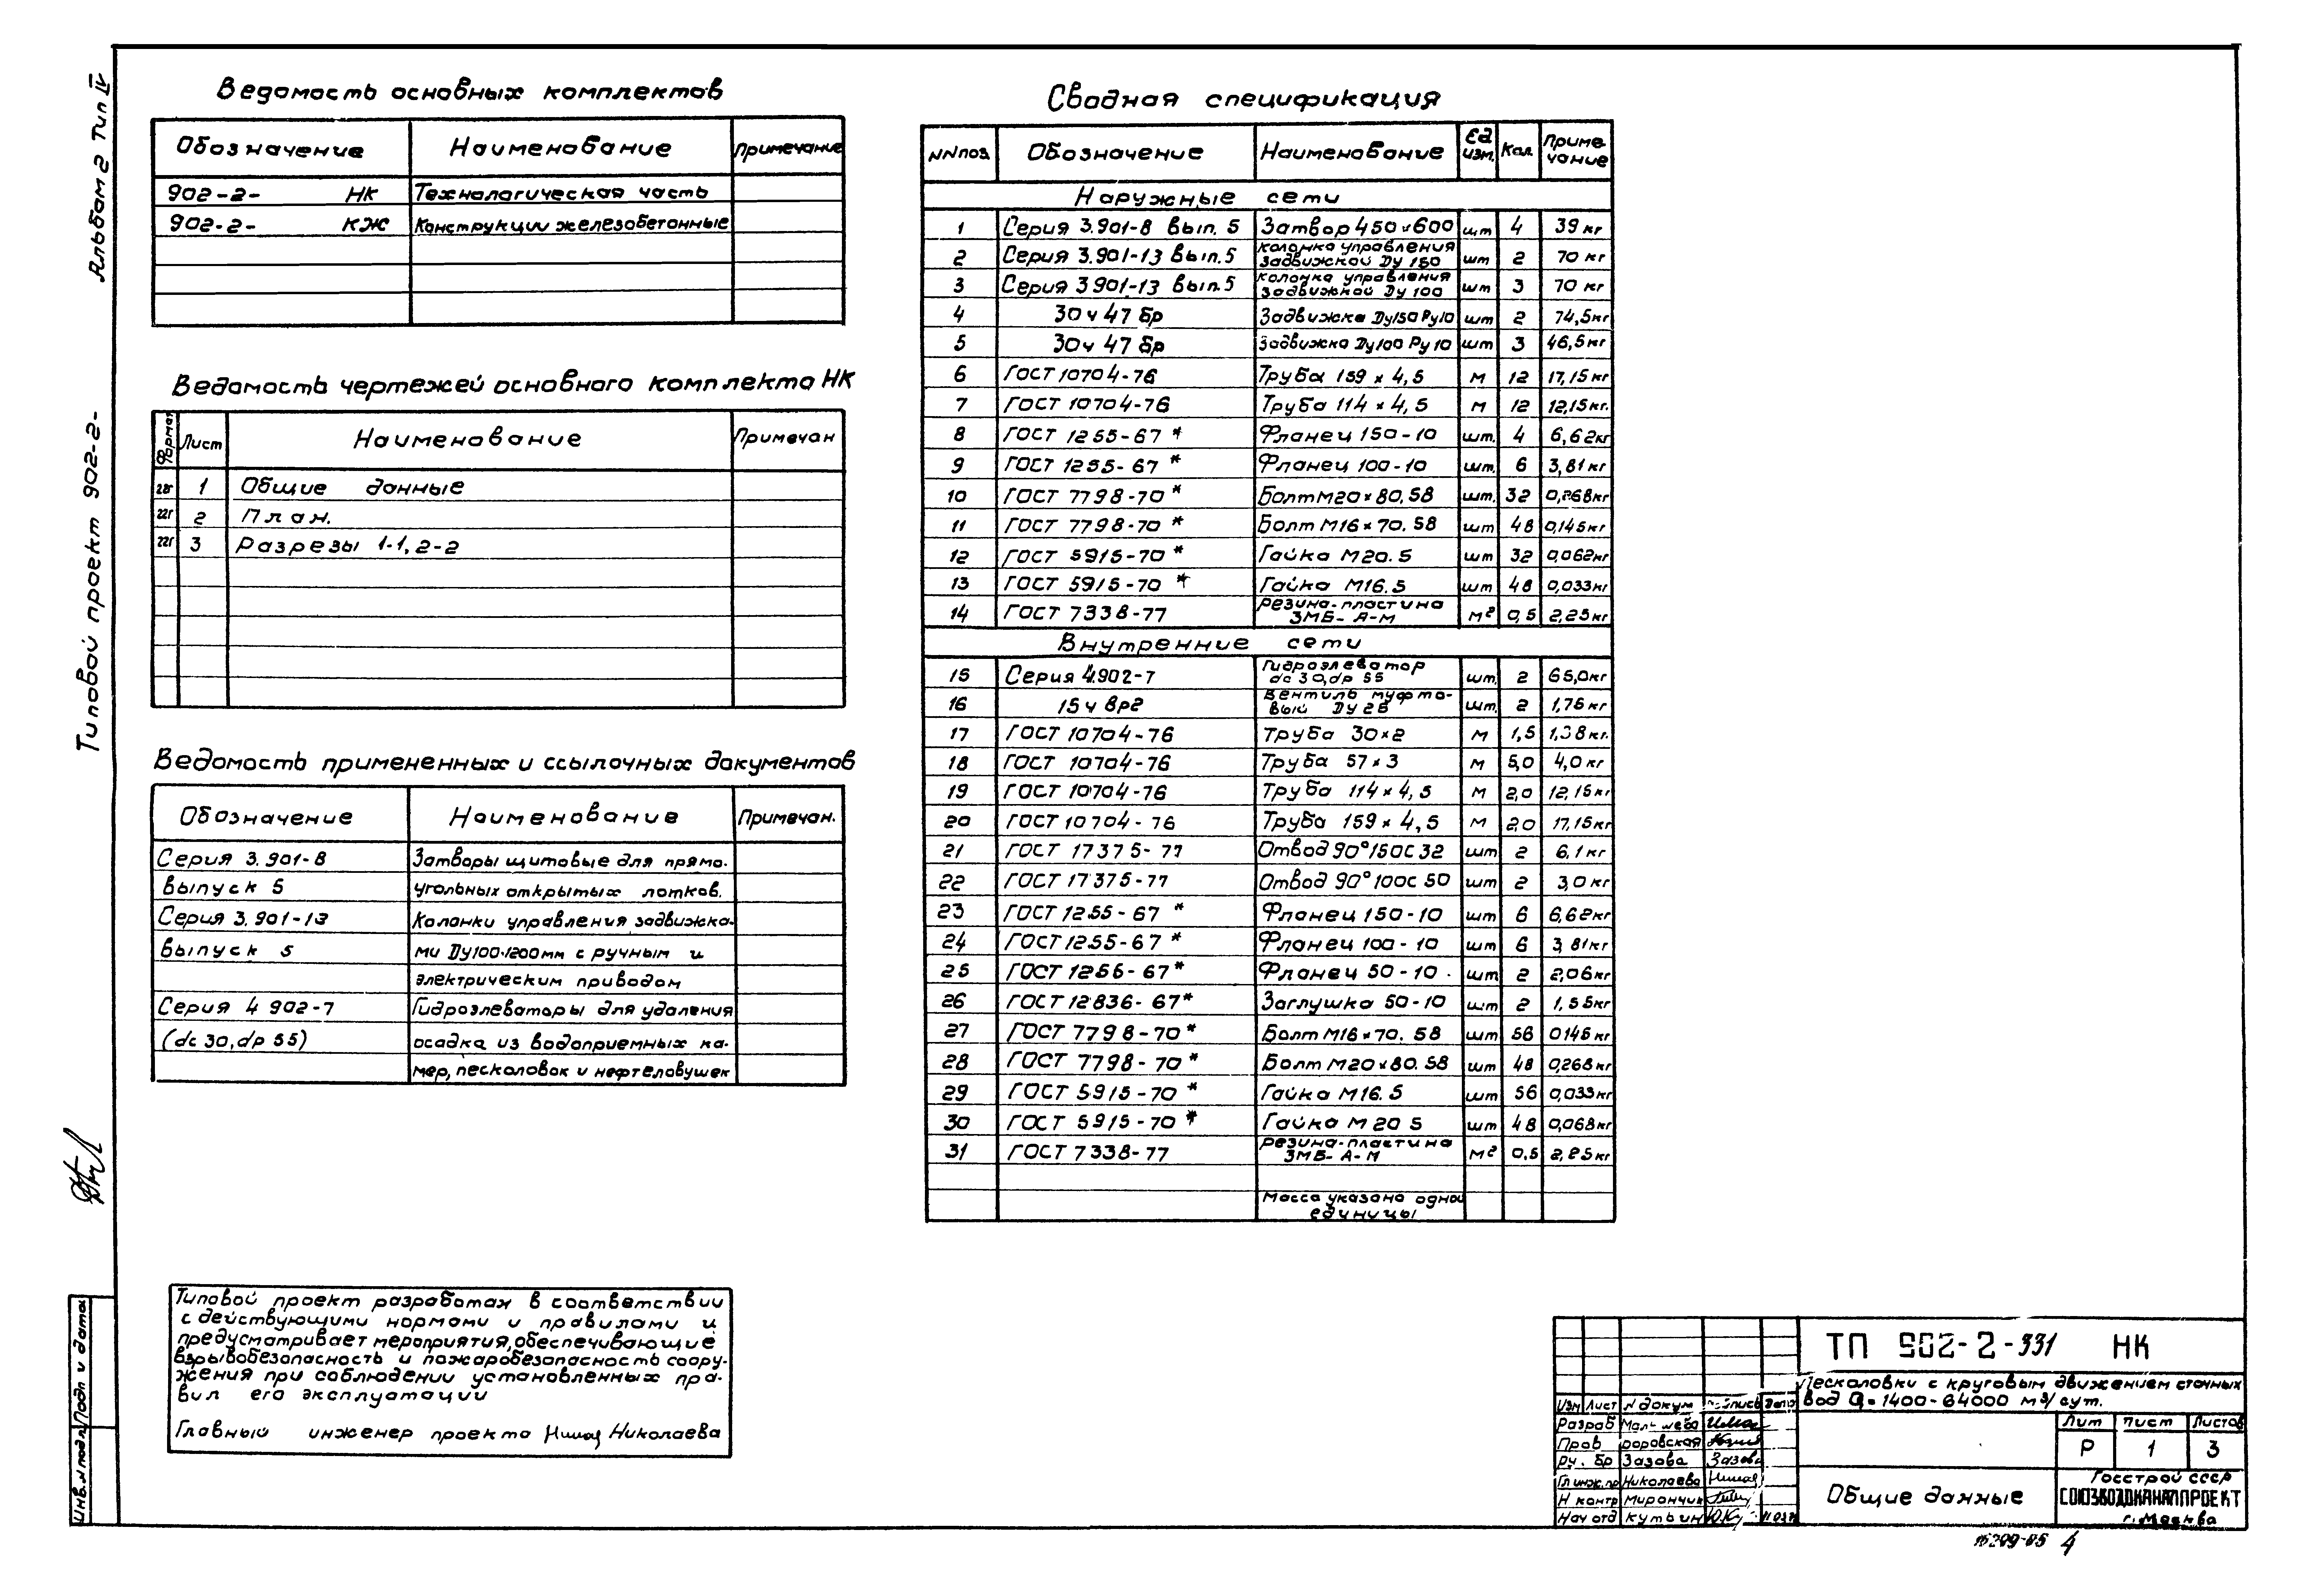 Альбом 2 Тип IV
Типовой проект 902-2-
Ведомость основных комплектов
Обозначение Наименование Примечание
902-2- НК Технологическая часть
902-2- КЖ Конструкции железобетонные
Ведомость чертежей основного комплекта НК
Формат Лист Наименование Примечан
22г 1 Общие данные
22г 2 План.
22г 3 Разрезы 1-1, 2-2
Ведомость примененных и ссылочных документов
Обозначение Наименование Примечан.
Серия 3.901-8 Затворы щитовые для прямо-
выпуск 5 угольных открытых лотков.
Серия 3.901-13 Колонки управления задвижка-
выпуск 5 ми Ду100÷1200мм с ручным и
электрическим приводом
Серия 4 902-7 Гидроэлеваторы для удаления
(dc 30, dp 55) осадка из водоприемных ка-
мер, песколовок и нефтеловушек
Типовой проект разработан в соответствии
с действующими нормами и правилами и
предусматривает мероприятия, обеспечивающие
взрывобезопасность и пожаробезопасность соору-
жения при соблюдении установленных пра-
вил его эксплуатации
Главный инженер проекта Николаева
Сводная спецификация
NN поз. Обозначение Наименование Ед изм. Кол. Приме-чание
Наружные сети
1 Серия 3.901-8 вып. 5 Затвор 450×600 шт 4 39 кг
2 Серия 3.901-13 вып.5 Колонка управления задвижкой Ду 150 шт 2 70 кг
3 Серия 3 901-13 вып.5 Колонка управления задвижкой Ду 100 шт 3 70 кг
4 30ч 47 бр Задвижка Ду150 Ру10 шт 2 74,5кг
5 30ч 47 бр Задвижка Ду100 Ру10 шт 3 46,5кг
6 ГОСТ 10704-76 Труба 159 × 4,5 м 12 17,15 кг
7 ГОСТ 10704-76 Труба 114 × 4,5 м 12 12,15кг.
8 ГОСТ 1255-67 * Фланец 150-10 шт. 4 6,62кг
9 ГОСТ 1255-67 * Фланец 100-10 шт. 6 3,81 кг
10 ГОСТ 7798-70 * Болт М20×80.58 шт. 32 0,268кг
11 ГОСТ 7798-70 * Болт М16×70.58 шт 48 0,145кг
12 ГОСТ 5915-70 * Гайка М20.5 шт 32 0,062кг
13 ГОСТ 5915-70 * Гайка М16.5 шт 48 0,033кг
14 ГОСТ 7338-77 Резина-пластина 3МБ-А-М м² 0,5 2,25кг
Внутренние сети
15 Серия 4.902-7 Гидроэлеватор dc 30, dp 55 шт. 2 65,0кг
16 15ч 8р2 Вентиль муфто-вый Ду 25 шт. 2 1,75 кг
17 ГОСТ 10704-76 Труба 30×2 м 1,5 1,38кг.
18 ГОСТ 10704-76 Труба 57×3 м 5,0 4,0 кг
19 ГОСТ 10704-76 Труба 114×4,5 м 2,0 12,15кг
20 ГОСТ 10704-76 Труба 159×4,5 м 2,0 17,15кг
21 ГОСТ 17375-77 Отвод 90°150С 32 шт 2 6,1 кг
22 ГОСТ 17375-77 Отвод 90°100С 50 шт 2 3,0 кг
23 ГОСТ 1255-67 * Фланец 150-10 шт 6 6,62кг
24 ГОСТ 1255-67 * Фланец 100-10 шт 6 3,81кг
25 ГОСТ 1255-67* Фланец 50-10 шт 2 2,06кг
26 ГОСТ 12836-67* Заглушка 50-10 шт 2 1,55кг
27 ГОСТ 7798-70* Болт М16×70.58 шт 56 0145 кг
28 ГОСТ 7798-70 * Болт М20×80.58 шт 48 0,268кг
29 ГОСТ 5915-70 * Гайка М16.5 шт 56 0,033кг
30 ГОСТ 5915-70 * Гайка М 20 5 шт 48 0,068кг
31 ГОСТ 7338-77 Резина-пластина 3МБ-А-М м² 0,5 2,25кг
Масса указана одной
единицы
Инв. N подл. Подп и дата
ТП 902-2-331 НК
Песколовки с круговым движением сточных
вод Q=1400-64000 м³/сут.
Изм Лист N докум Подпись Дата
Разраб
Пров
Рук. бр Зазова Зазова
Гл инж. пр Николаева
Н контр Мирончик
Нач отд Кутьин
Лит Лист Листов
Р 1 3
Общие данные
Госстрой СССР
СОЮЗВОДОКАНАЛПРОЕКТ
г. Москва
4